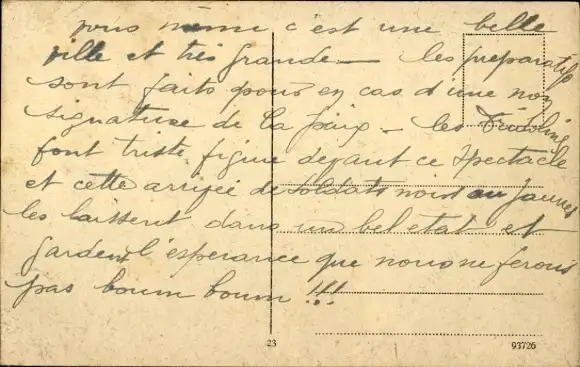 vous même c'est une belle
ville et très grande — les préparatifs
sont faits pour en cas d'une non
signature de la paix — les
font triste figure devant ce spectacle
et cette arrivée de soldats noirs ou jaunes
les laissent dans un bel etat et
gardent l'espérance que nous ne ferons
pas boum boum !!!
23
93726